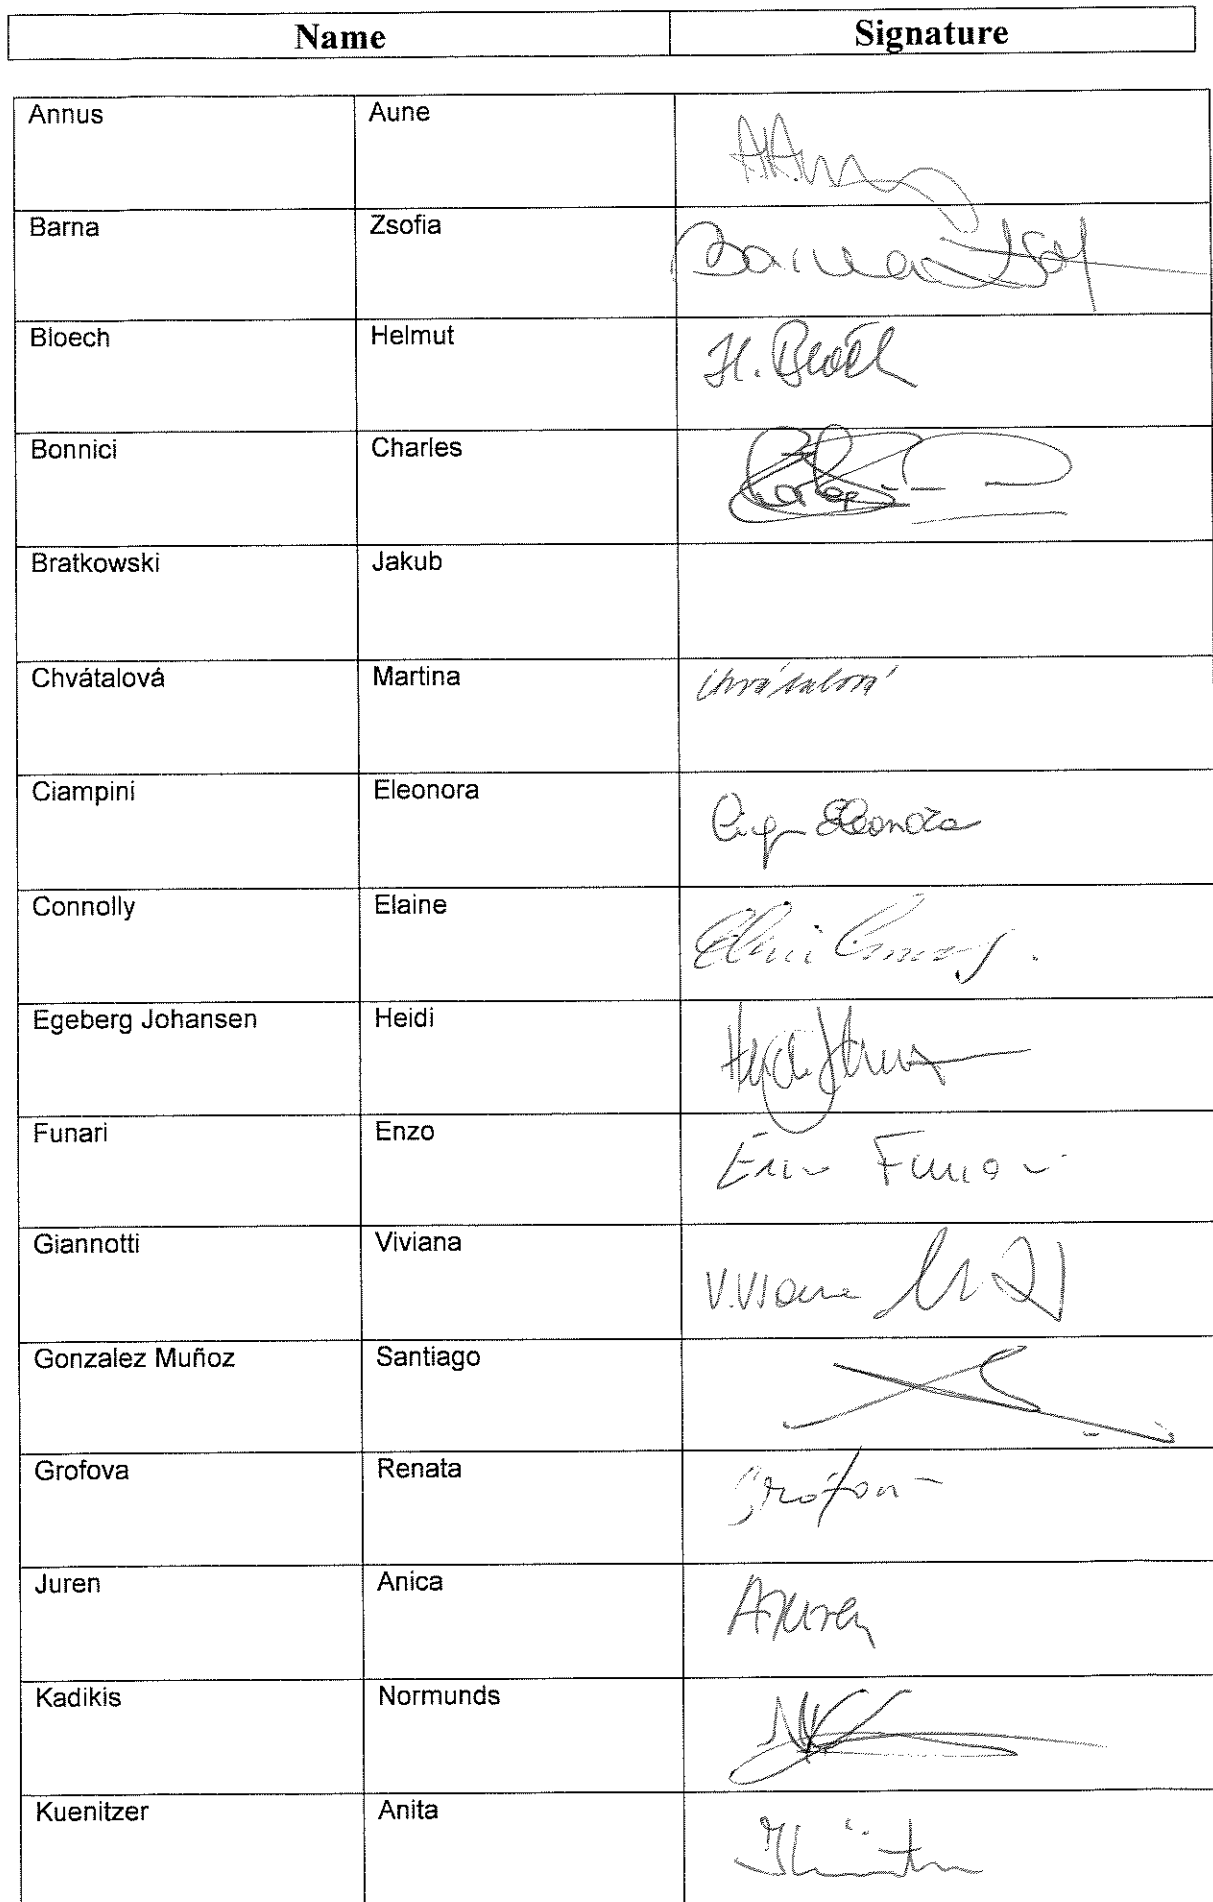 Name Signature
Annus Aune
Barna Zsofia Barna Zsof
Bloech Helmut H. Blöch
Bonnici Charles
Bratkowski Jakub
Chvátalová Martina Chvátalová
Ciampini Eleonora Eleonora
Connolly Elaine
Egeberg Johansen Heidi
Funari Enzo Funari
Giannotti Viviana Viviana
Gonzalez Muñoz Santiago
Grofova Renata
Juren Anica AJuren
Kadikis Normunds
Kuenitzer Anita